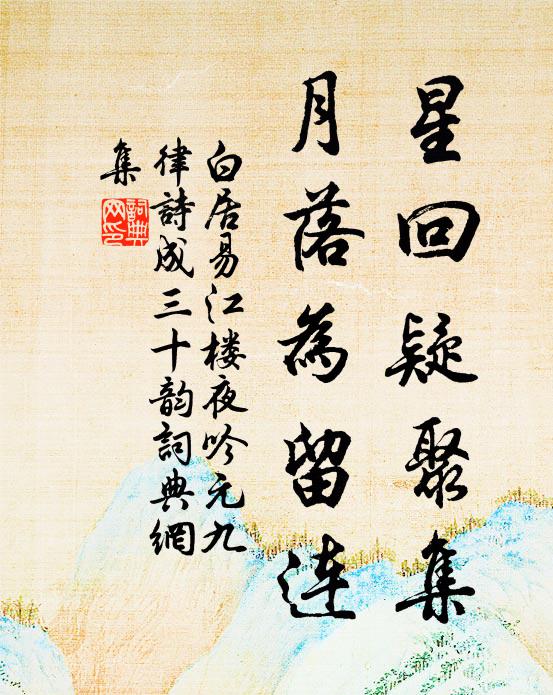 星回疑聚集
月落為留連
白居易江楼夜吟元九
律詩成三十韵詞典網
集
詞典
网印